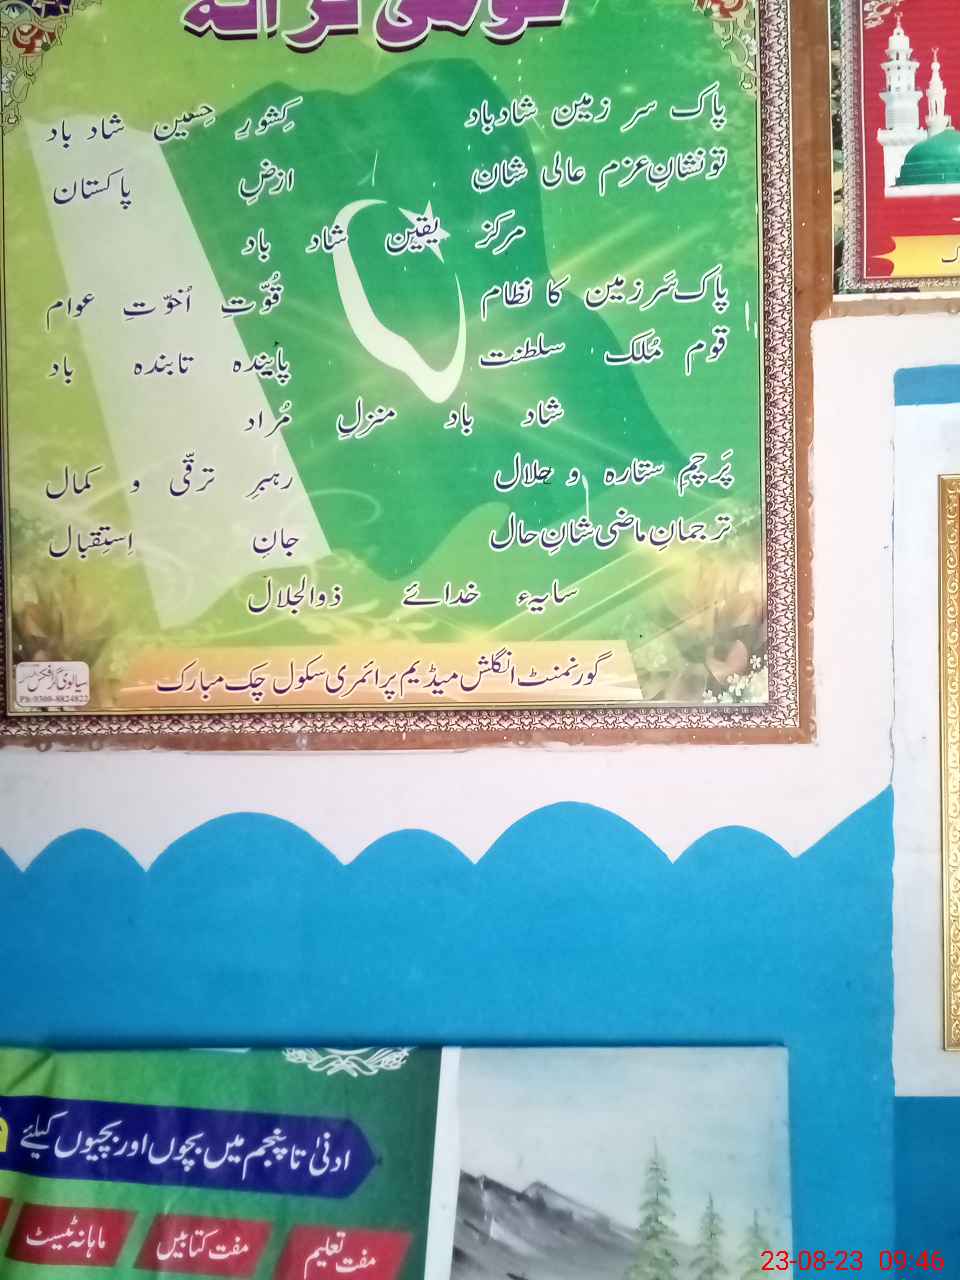 قومی ترانہ
پاک سر زمین شاد باد کِشورِ حسین شاد باد
تو نشانِ عزم عالی شان ارضِ پاکستان
مرکز یقین شاد باد
پاک سَر زمین کا نظام قُوّتِ اُخوّتِ عوام
قوم مُلک سلطنت پاینده تابنده باد
شاد باد منزلِ مُراد
پَرچمِ ستارہ و حلال رہبرِ ترقّی و کمال
ترجمانِ ماضی شانِ حال جانِ اِستِقبال
سایہء خدائے ذوالجلال
گورنمنٹ انگلش میڈیم پرائمری سکول چک مبارک
سیالوی گرافکس
ادنیٰ تا پنجم میں بچوں اور بچیوں کیلئے
مفت تعلیم مفت کتابیں ماہانہ ٹیسٹ
23-08-23 09:46